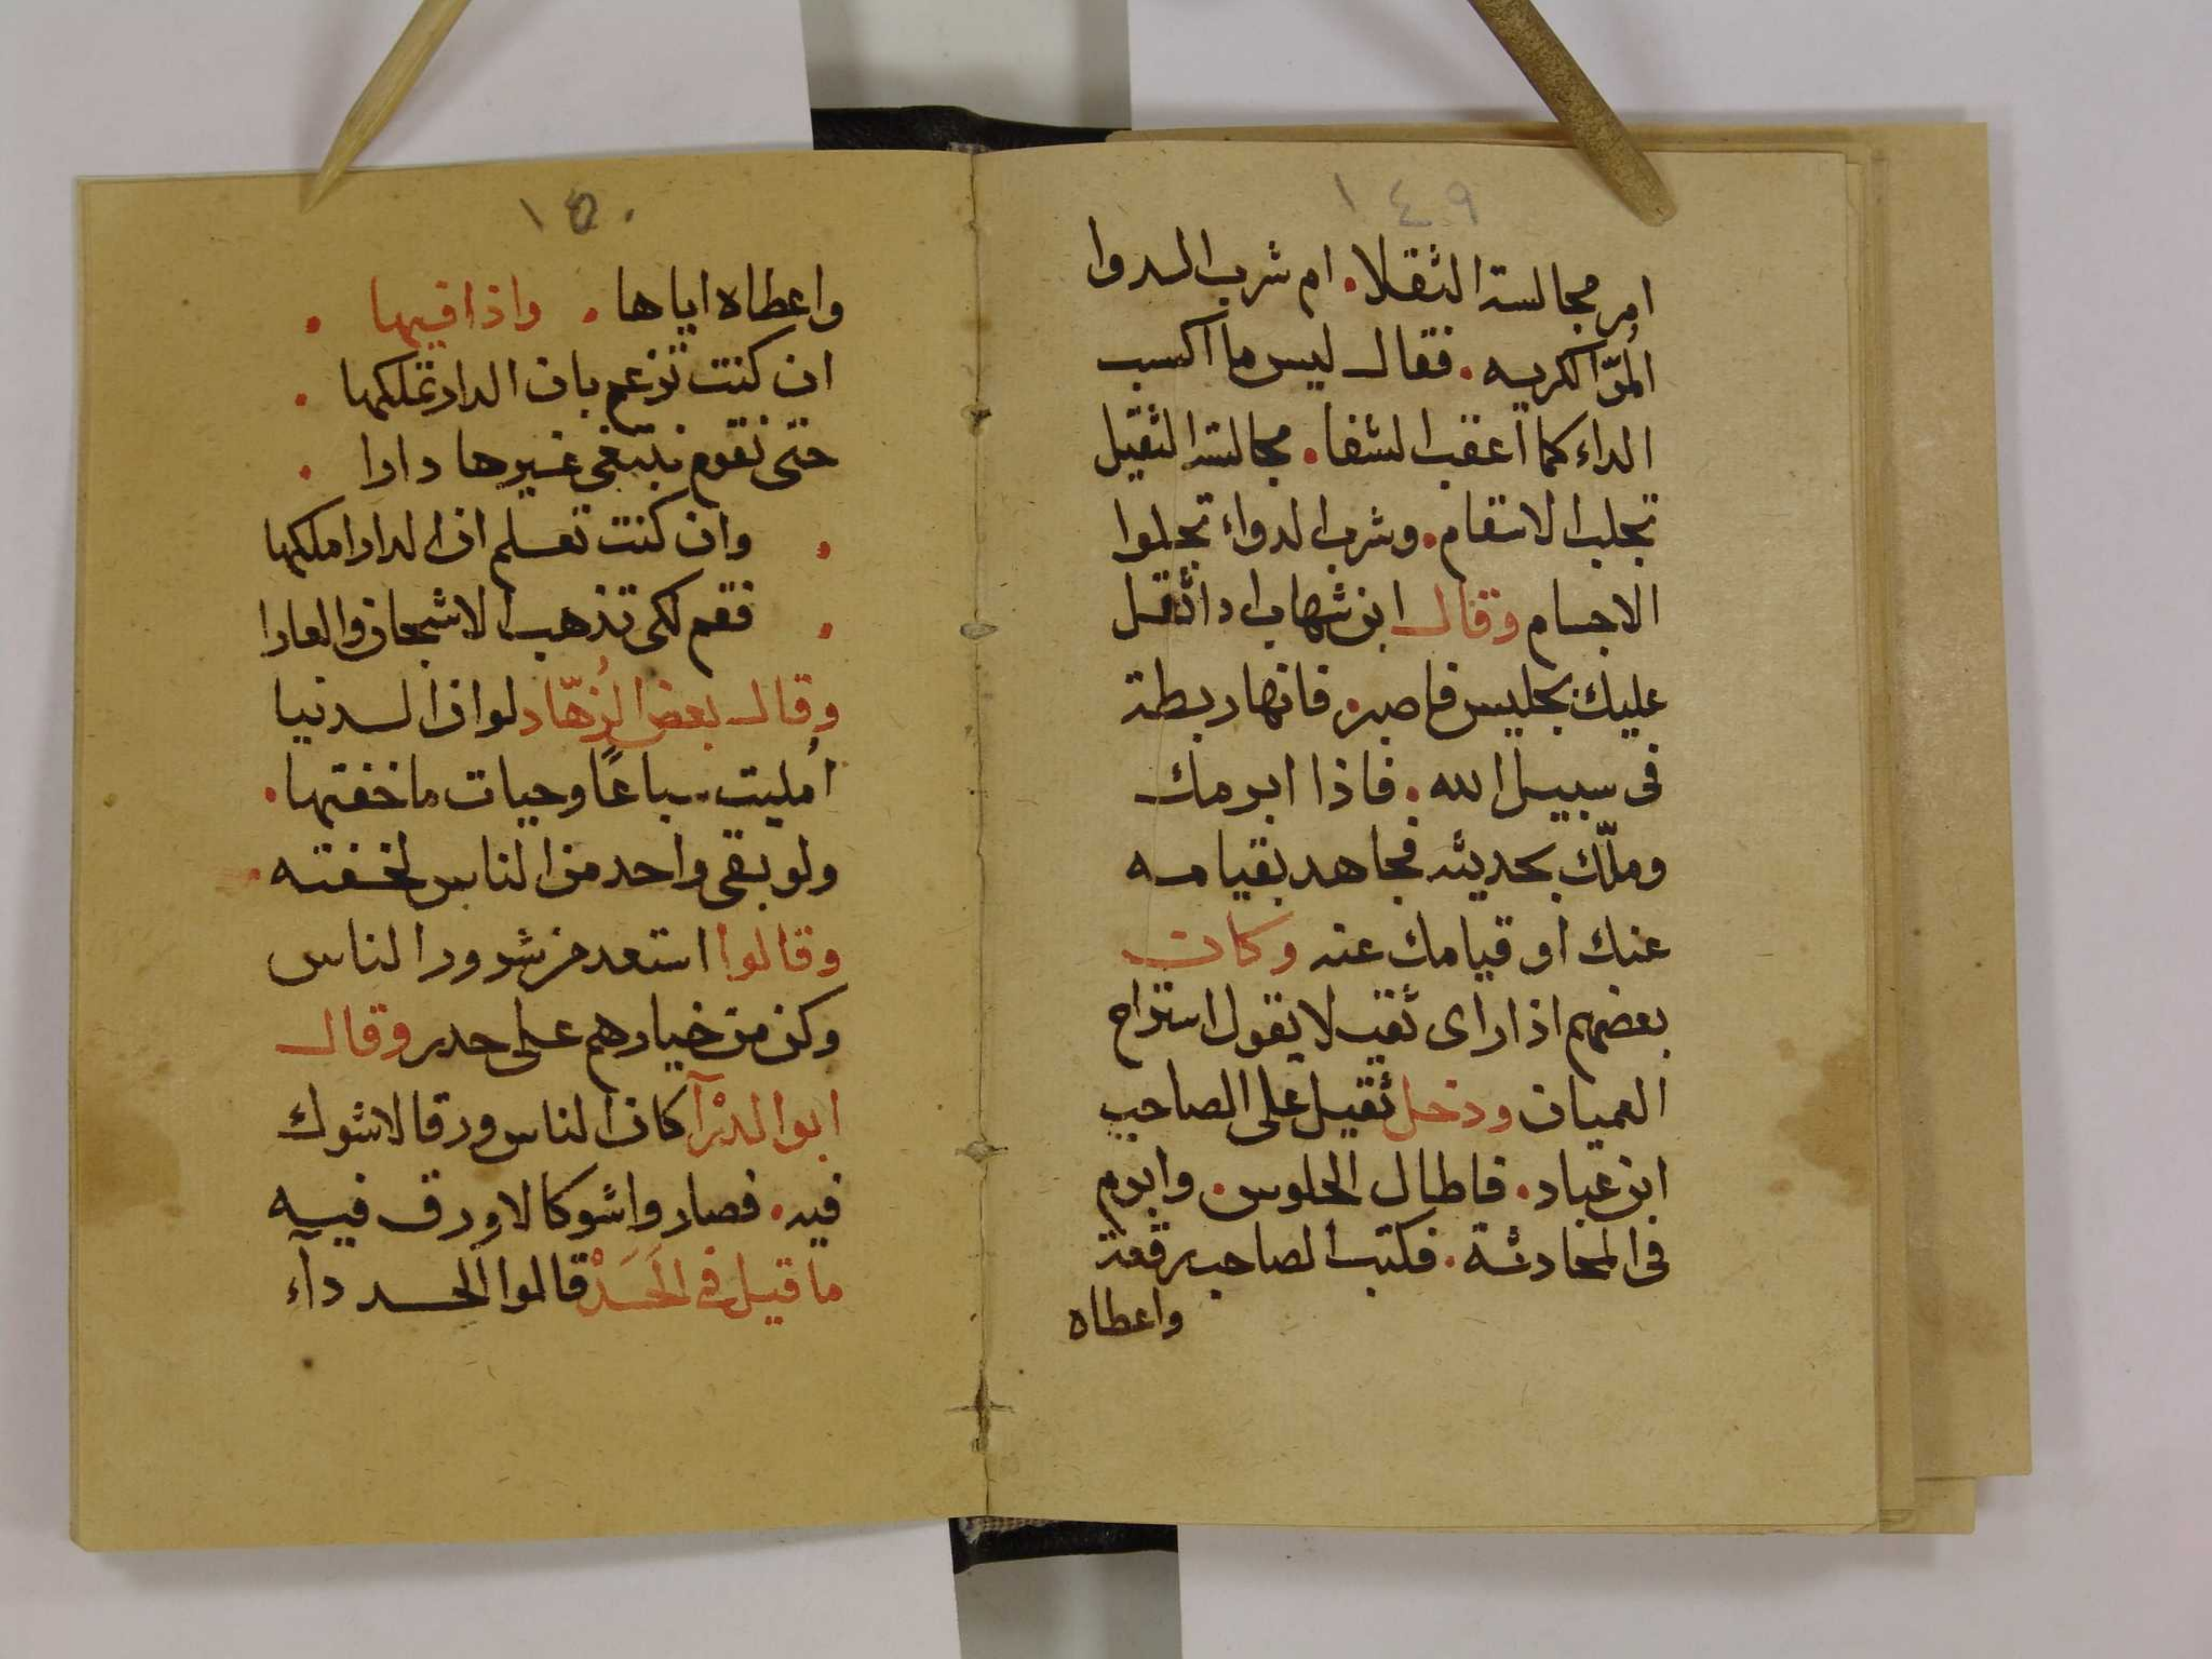 ١٤٩
امر مجالسة الثقلا. ام شرب الدوا
المُرّ الكريه. فقال ليس ما اكسب
الداء كما اعقب الشفا. مجالسة الثقيل
تجلب الانتقام. وشرب الدواء تجلوا
الاجسام وقال ابن شهاب اذا ثقل
عليك جليس فاصبر. فانها ربطة
فى سبيل الله. فاذا ابرمك
وملّك بحديثه فجاهد بقيامه
عنك او قيامك عنه وكان
بعضهم اذا راى ثقيلا يقول استراح
العميان ودخل ثقيل على الصاحب
ابن عباد. فاطال الجلوس. وابرم
فى المحادثة. فكتب الصاحب رقعة
واعطاه
١٥٠
واعطاه اياها. واذا فيها.
ان كنت تزعم بان الدار تملكها.
حتى نقوم نبتغى غيرها دارا.
. وان كنت تعلم ان الدار املكها
. فقم لكى تذهب الاشجان والعارا
وقال بعض الزُهّاد لو ان الدنيا
اُمليت سباعًا وحيات ما خفتها.
ولو بقى واحد من الناس لخفته.
وقالوا استعد من شرور الناس
وكن من خيارهم على حدر وقال
ابو الدرْآ كان الناس ورقا لا شوك
فيه. فصاروا شوكا لا ورق فيه
ما قيل فى الحَسَدْ قالوا الحسد دآء